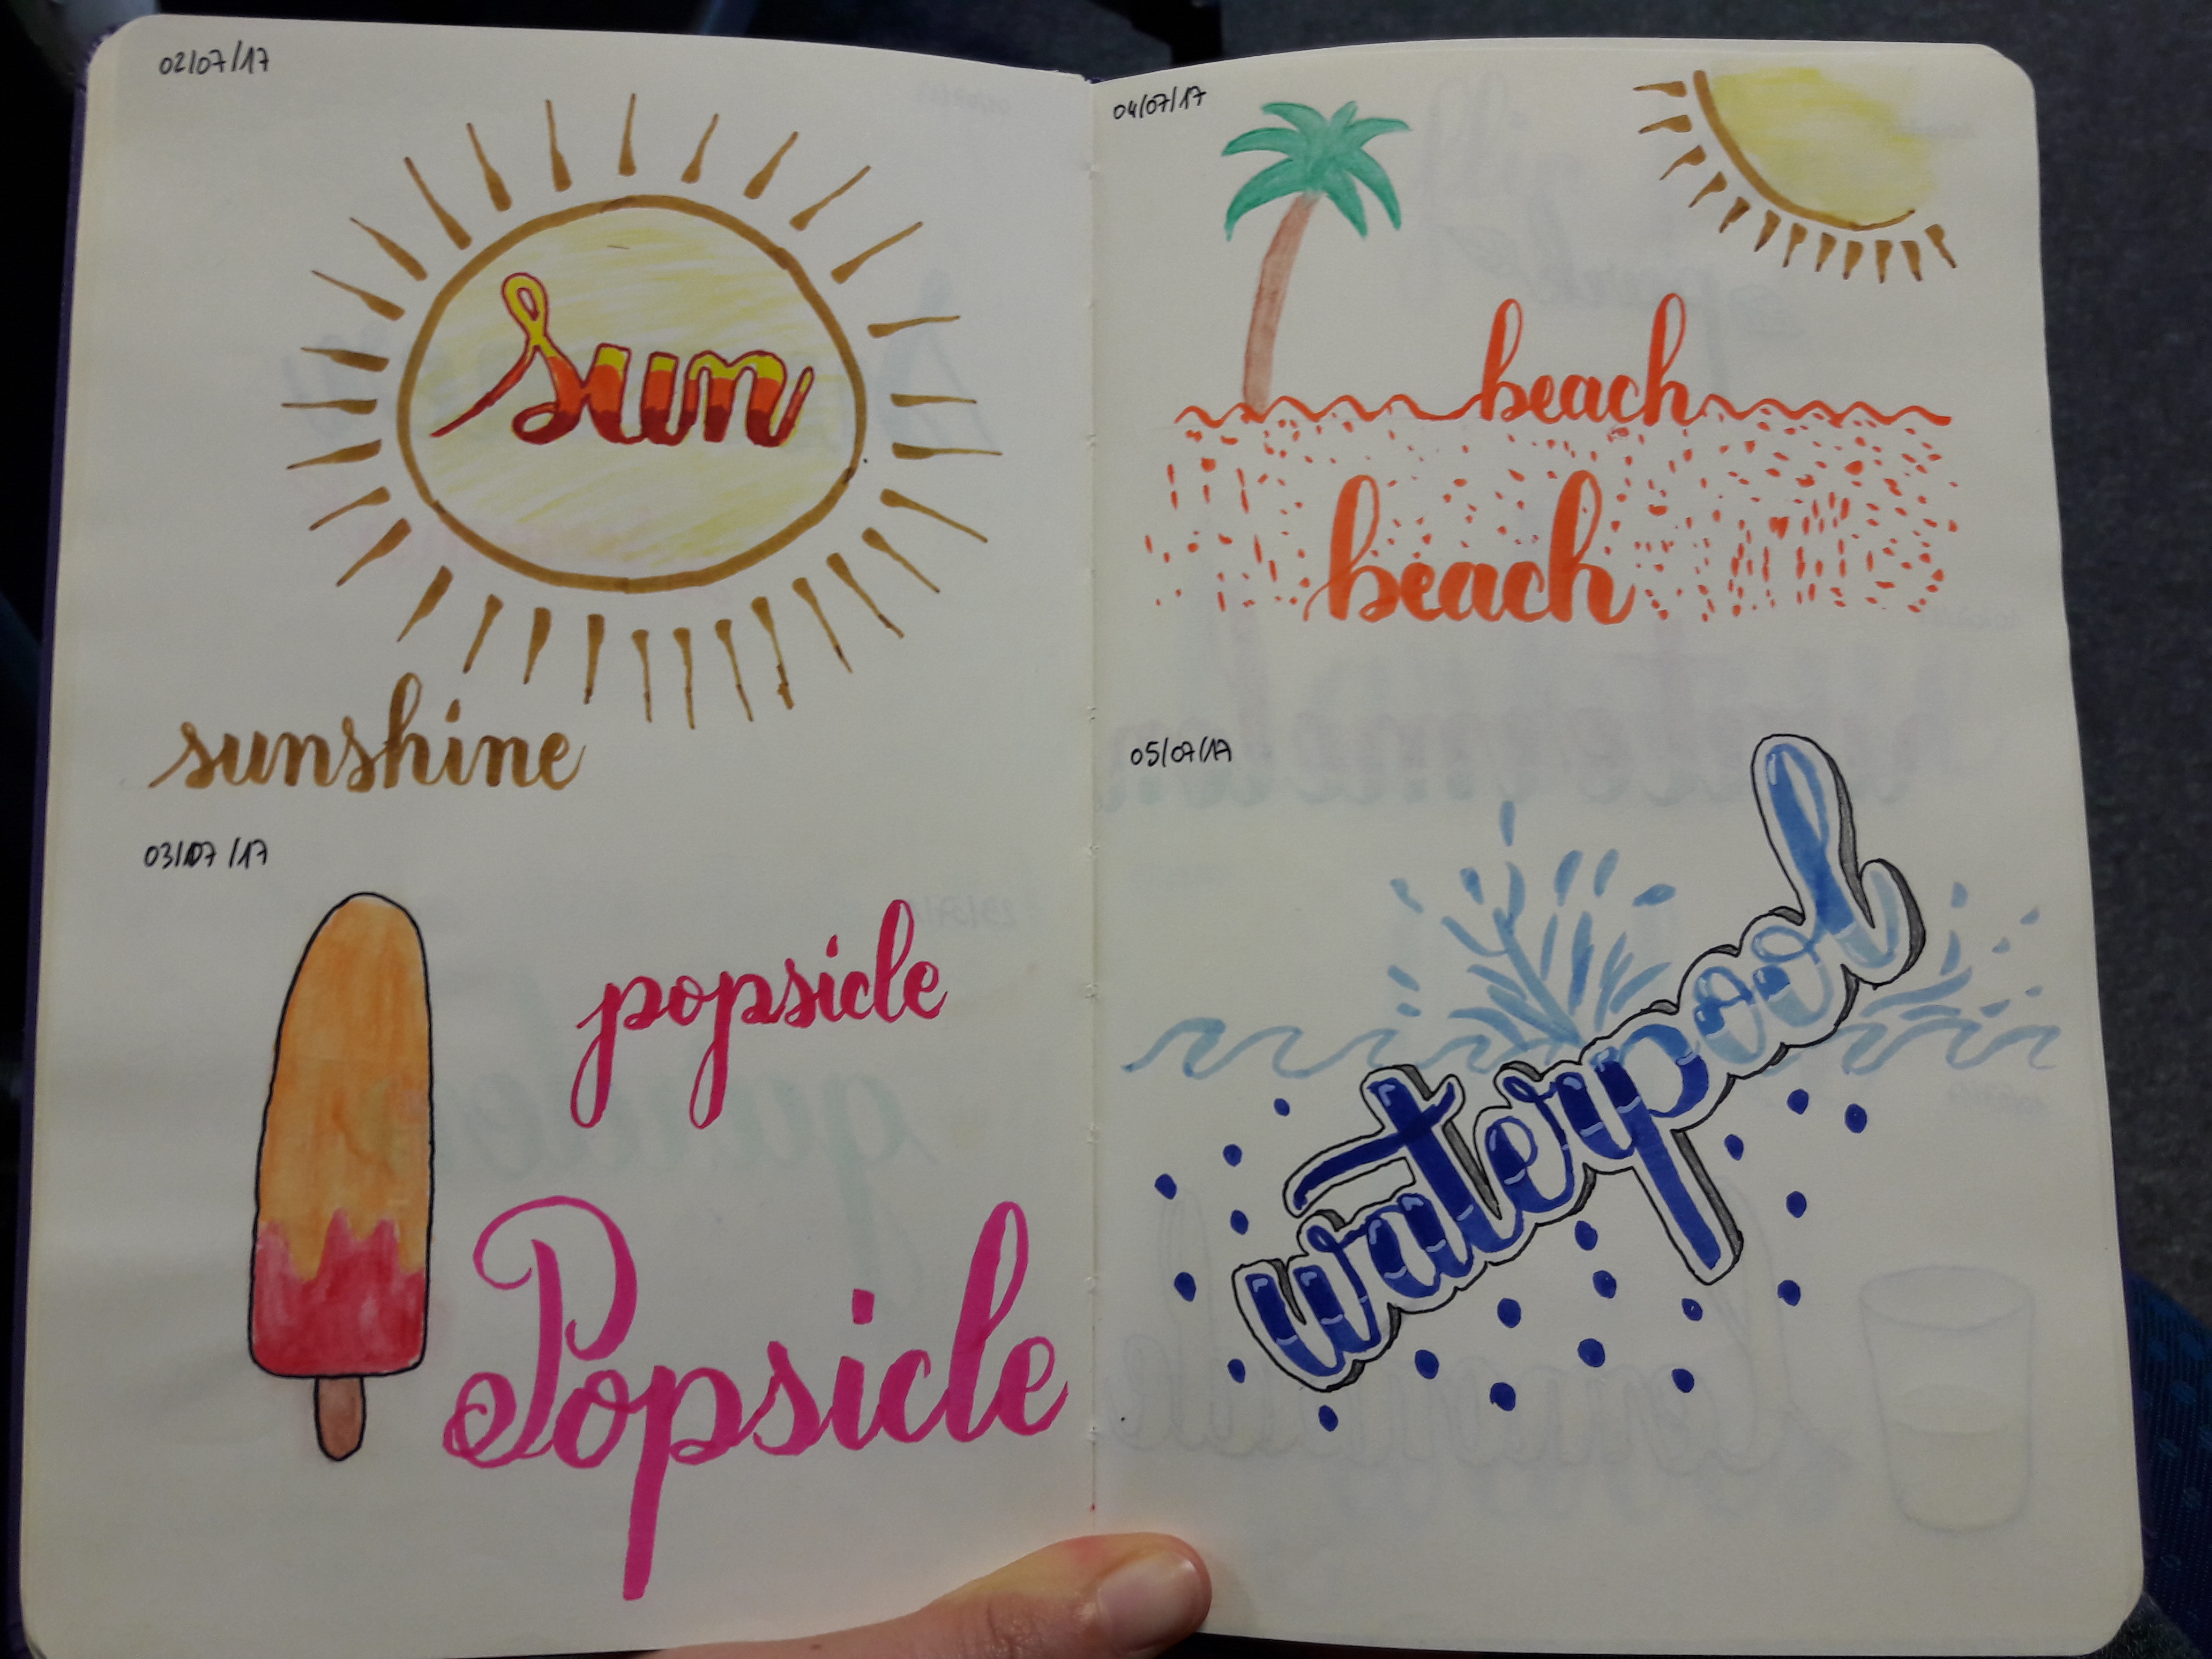 02/07/17
sun
sunshine
03/07/17
popsicle
Popsicle
04/07/17
beach
beach
05/07/17
waterpool